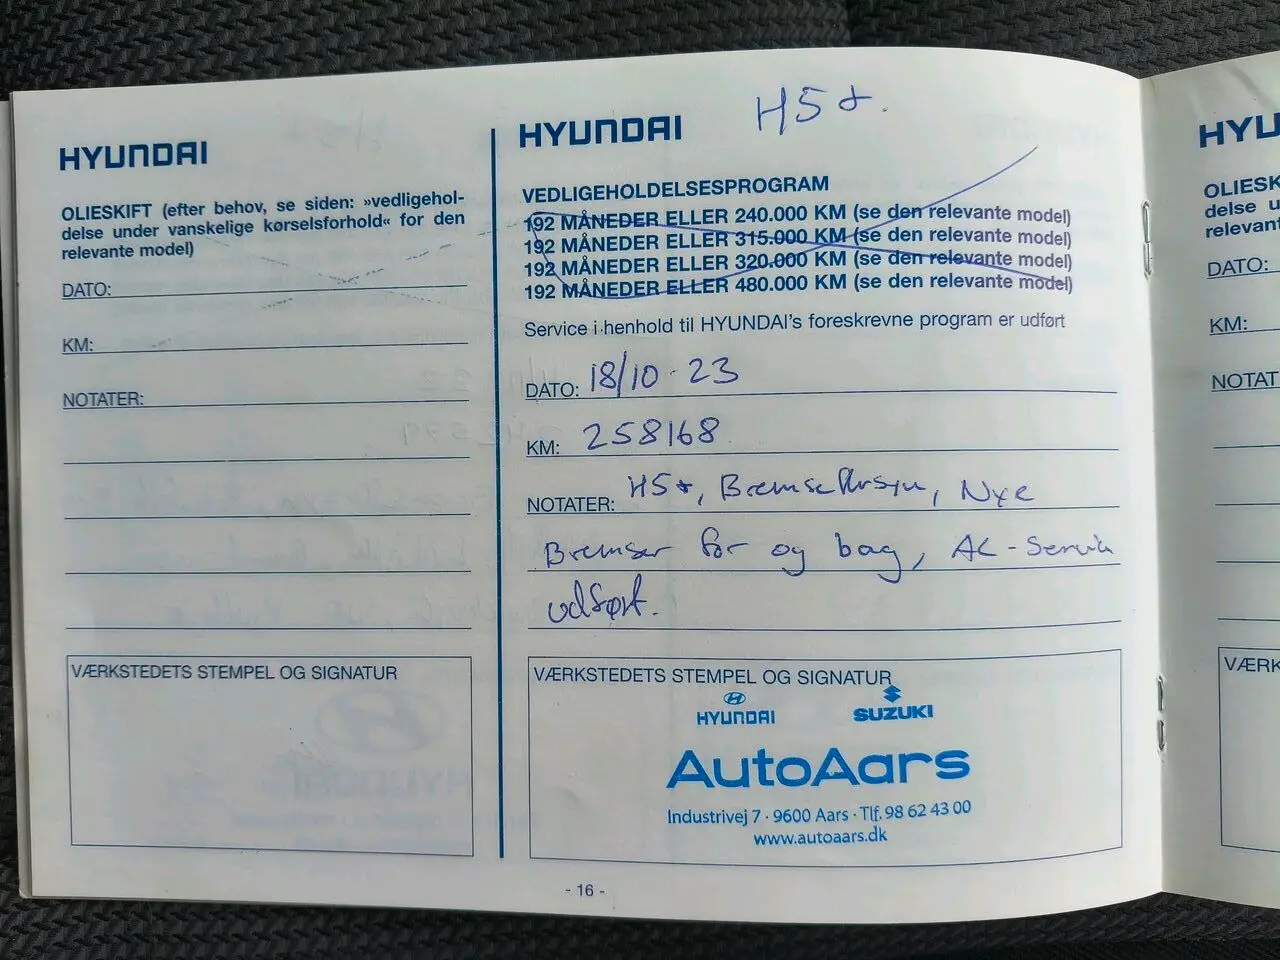 HYUNDAI
OLIESKIFT (efter behov, se siden: »vedligehol-
delse under vanskelige kørselsforhold« for den
relevante model)
DATO:
KM:
NOTATER:
VÆRKSTEDETS STEMPEL OG SIGNATUR
H5+.
HYUNDAI
VEDLIGEHOLDELSESPROGRAM
192 MÅNEDER ELLER 240.000 KM (se den relevante model)
192 MÅNEDER ELLER 315.000 KM (se den relevante model)
192 MÅNEDER ELLER 320.000 KM (se den relevante model)
192 MÅNEDER ELLER 480.000 KM (se den relevante model)
Service i henhold til HYUNDAI's foreskrevne program er udført
DATO: 18/10-23
KM: 258168
NOTATER: H5+, Bremseftersyn, Nye
Bremser for og bag, AC-Servic
udført.
VÆRKSTEDETS STEMPEL OG SIGNATUR
HYUNDAI SUZUKI
AutoAars
Industrivej 7 · 9600 Aars · Tlf. 98 62 43 00
www.autoaars.dk
- 16 -
HYU
OLIESK
delse u
relevant
DATO:
KM:
NOTAT
VÆRK